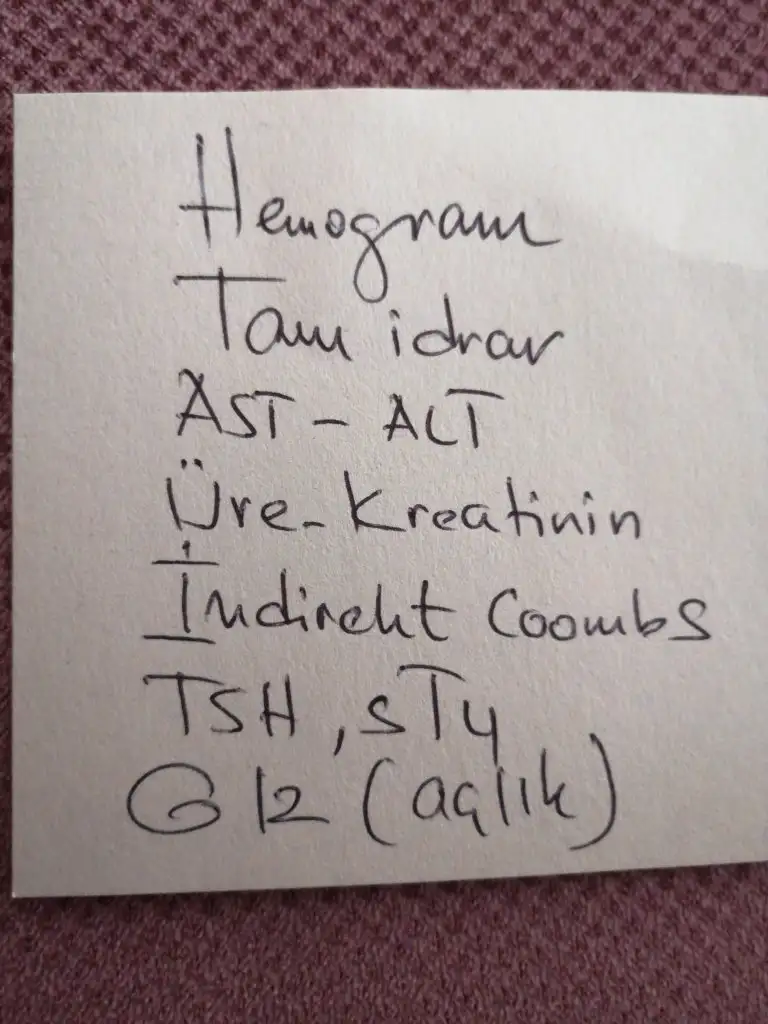 Hemogram
Tam idrar
AST - ALT
Üre - Kreatinin
İndirekt Coombs
TSH, sT4
(açlık)